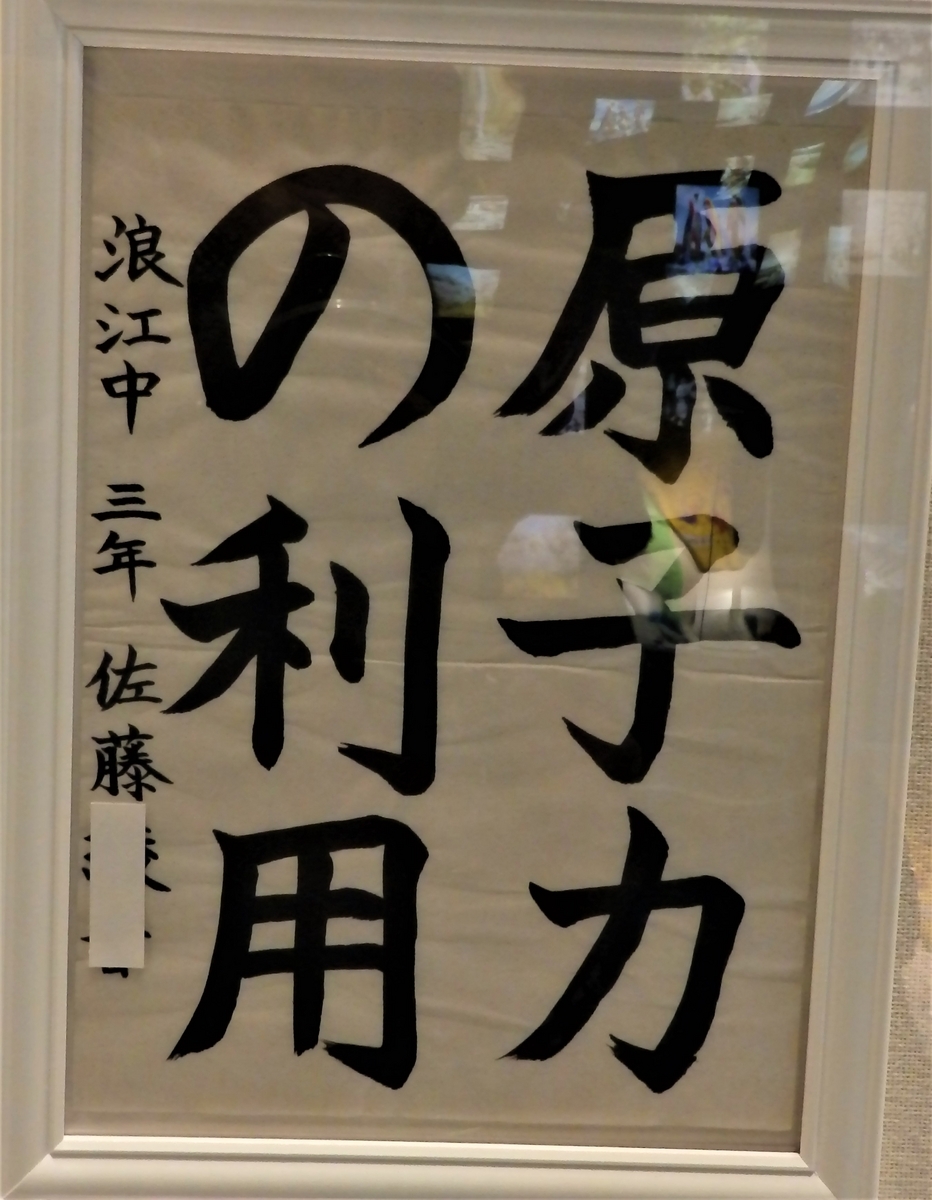 原子力
の利用
浪江中 三年 佐藤